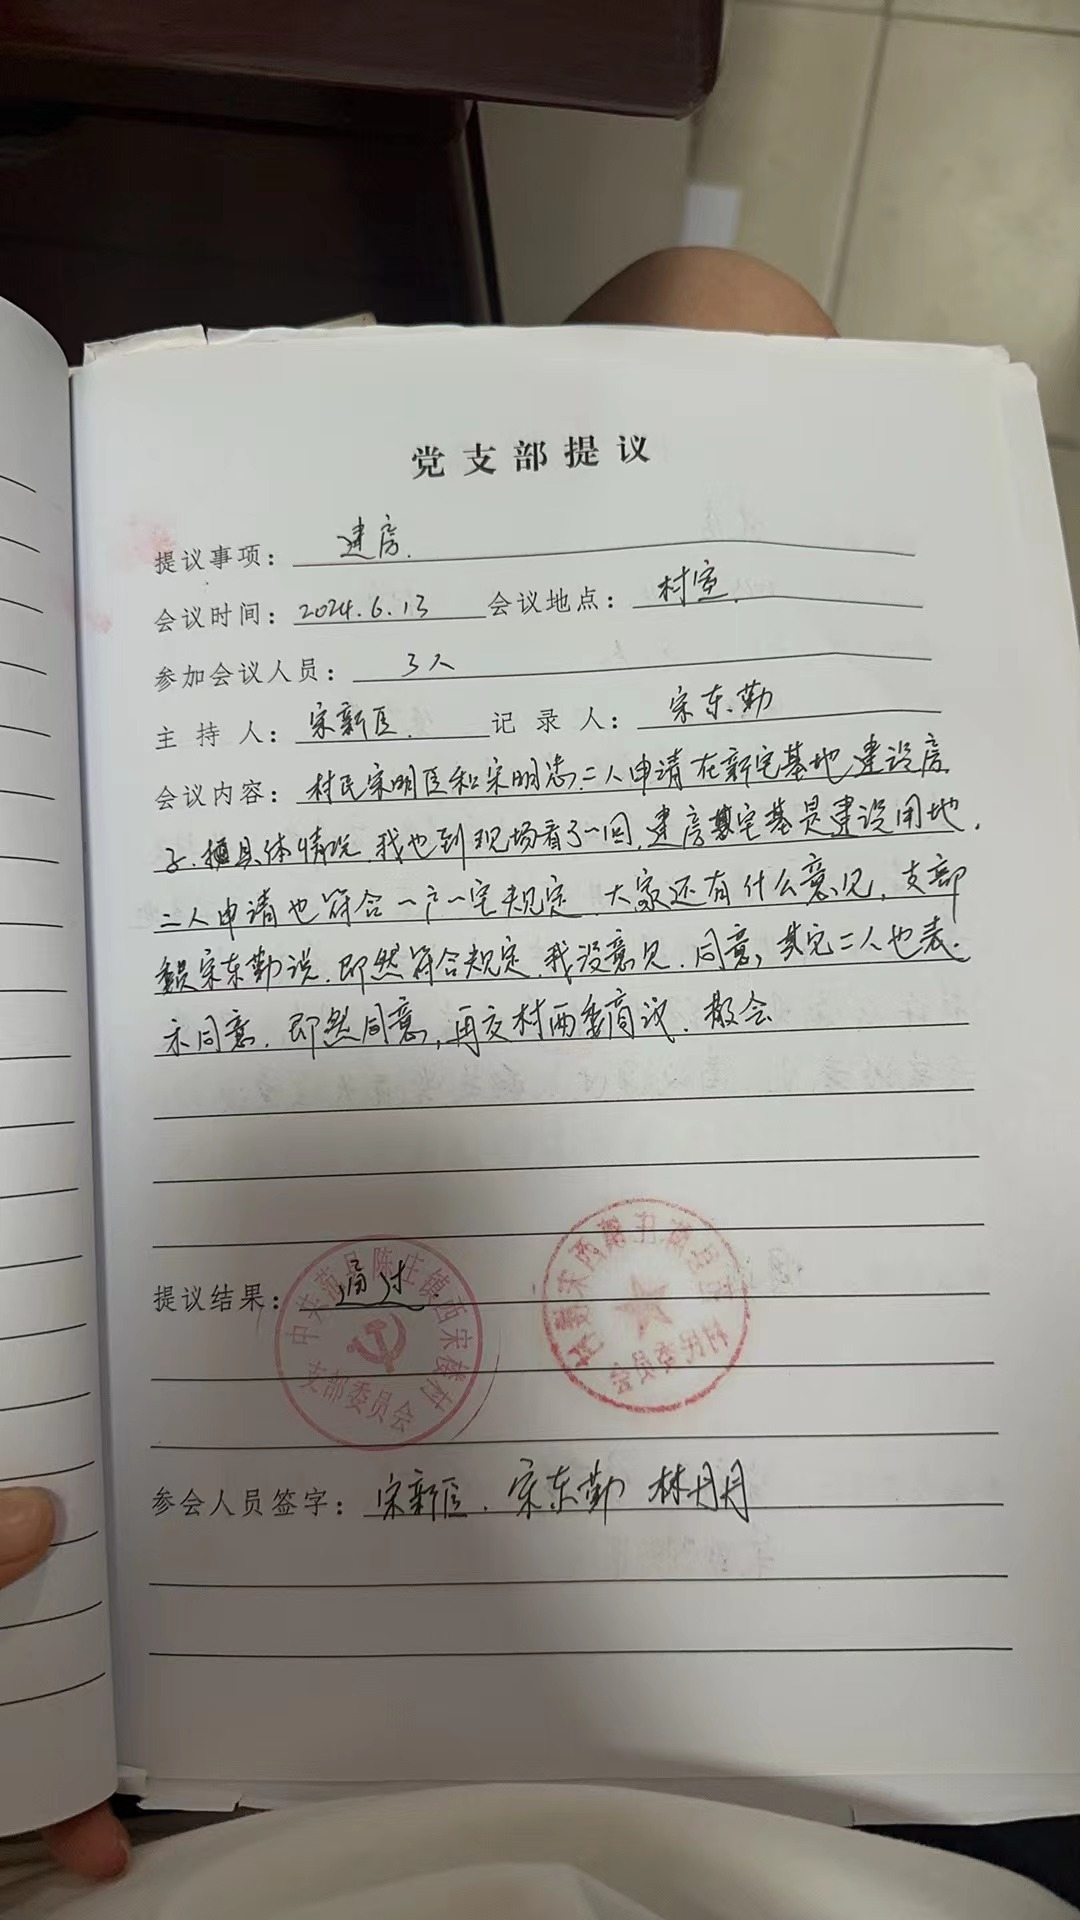 党支部提议
提议事项： 建房.
会议时间： 2024.6.13 会议地点： 村室.
参加会议人员： 3人
主持人： 宋新臣. 记录人： 宋东勤
会议内容： 村民宋明臣和宋明志.二人申请在新宅基地建设房
子.据具体情况.我也到现场看了一回,建房宅基是建设用地.
二人申请也符合一户一宅规定.大家还有什么意见,支部
委员宋东勤说.即然符合规定.我没意见.同意,其它二人也表.
示同意.即然同意,再交村两委商议.散会
提议结果： 通过.
中共范县陈庄镇西宋楼村
支部委员会
村民委员会
参会人员签字： 宋新臣. 宋东勤 林丹丹